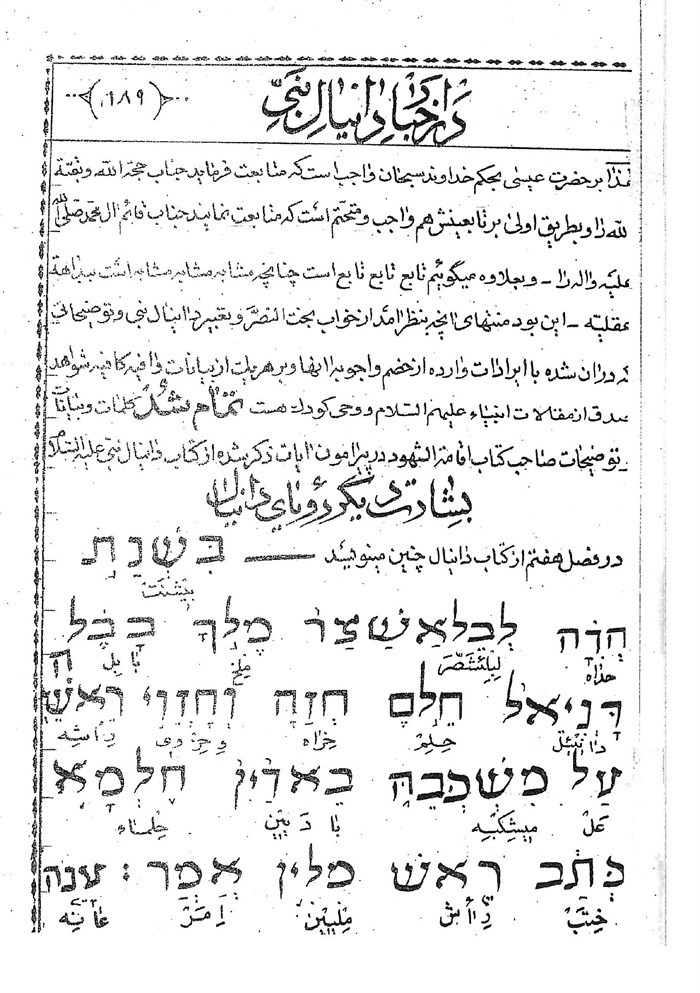 در اخبار دانیال نبی
(۱۸۹)
لهذا بر حضرت عیسی بحکم خداوند سبحان واجب است که متابعت فرماید جناب حجة الله و بقیة
الله را و بطریق اولی بر تابعینش هم واجب و متحتم است که متابعت نمایند جناب قائم آل محمد صلی الله
علیه و آله را - و بعلاوه میگوئیم تابع تابع تابع است چنانچه مشابه مشابه مشابه است ببداهة
عقلیه - این بود منتهای آنچه بنظر آمد از خواب بخت النصر و تعبیر دانیال نبی و توضیحاتی
که در آن شده با ایرادات وارده از خصم و اجوبه آنها و بر هریک از بیانات وافیه کافیه شواهد
صدق از مقالات انبیاء علیهم السلام و وحی کودک هست تمام شد کلمات و بیانات
و توضیحات صاحب کتاب اقامة الشهود در پیرامون آیات ذکر شده از کتاب دانیال نبی علیه السلام
بشارت دیگر رؤیای دانیال
در فصل هفتم از کتاب دانیال چنین مینویسد — בִּשְׁנַת
بِشْنَتْ
חֲדָה לְבֵלְאשַׁצַּר מֶלֶךְ בָּבֶל
حداه لِبِلْئشَصَّر مِلِخ بابل
דָּנִיֵּאל חֵלֶם חֲזָה וְחֶזְוֵי רֵאשֵׁהּ
دانیئل حِلِمْ حزاه وحزوی رأشه
עַל מִשְׁכְּבֵהּ בֵּאדַיִן חֶלְמָא
عَلْ میشکبه بادیین حلماء
כְתַב רֵאשׁ מִלִּין אֲמַר : עָנֵה
ختب رأش ملیین امر عانه